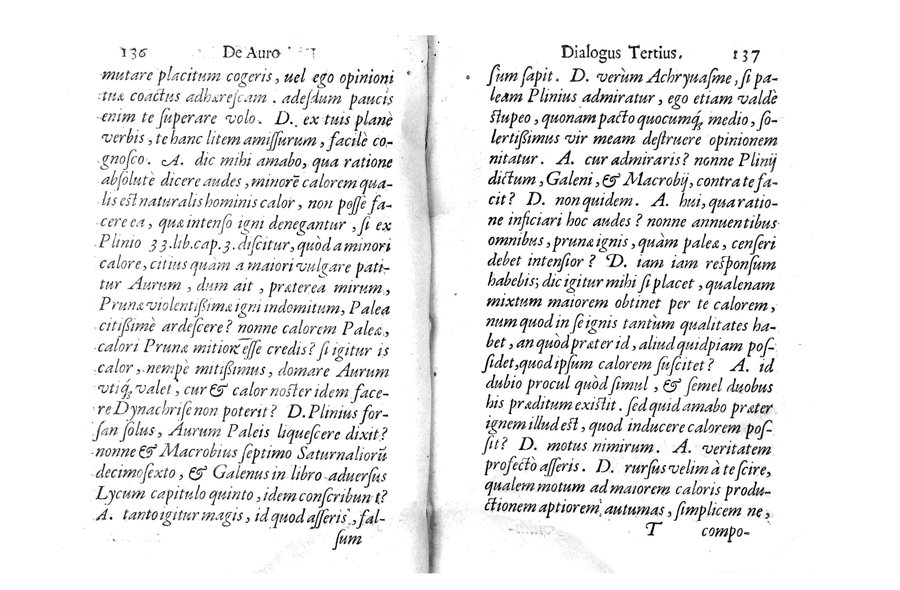 136 De Auro
mutare placitum cogeris, uel ego opinioni
tuæ coactus adhærescam. adesdum paucis
enim te superare volo. D. ex tuis planè
verbis, te hanc litem amissurum, facilè co-
gnosco. A. dic mihi amabo, qua ratione
absolutè dicere audes, minorẽ calorem qua-
lis est naturalis hominis calor, non posse fa-
cere ea, quæ intenso igni denegantur, si ex
Plinio 33.lib.cap.3.discitur, quòd a minori
calore, citius quam a maiori vulgare pati-
tur Aurum, dum ait, præterea mirum,
Prunæ violentißimæ igni indomitum, Palea
citißimè ardescere? nonne calorem Paleæ,
calori Prunæ mitiorẽ esse credis? si igitur is
calor, nempè mitißimus, domare Aurum
vtiq; valet, cur & calor noster idem face-
re Dynachrise non poterit? D. Plinius for-
san solus, Aurum Paleis liquescere dixit?
nonne & Macrobius septimo Saturnaliorũ
decimosexto, & Galenus in libro aduersus
Lycum capitulo quinto, idem conscribunt?
A. tanto igitur magis, id quod asseris, fal-
sum
Dialogus Tertius. 137
sum sapit. D. verùm Achryuasme, si pa-
leam Plinius admiratur, ego etiam valdè
stupeo, quonam pacto quocumq; medio, so-
lertißimus vir meam destruere opinionem
nitatur. A. cur admiraris? nonne Plinij
dictum, Galeni, & Macrobij, contra te fa-
cit? D. non quidem. A. hui, qua ratio-
ne inficiari hoc audes? nonne annuentibus
omnibus, prunæ ignis, quàm paleæ, censeri
debet intensior? D. iam iam responsum
habebis; dic igitur mihi si placet, qualenam
mixtum maiorem obtinet per te calorem,
num quod in se ignis tantùm qualitates ha-
bet, an quòd præter id, aliud quidpiam pos-
sidet, quod ipsum calorem suscitet? A. id
dubio procul quòd simul, & semel duobus
his præditum existit. sed quid amabo præter
ignem illud est, quod inducere calorem pos-
sit? D. motus nimirum. A. veritatem
profectò asseris. D. rursus velim à te scire,
qualem motum ad maiorem caloris produ-
ctionem aptiorem autumas, simplicem ne,
T compo-